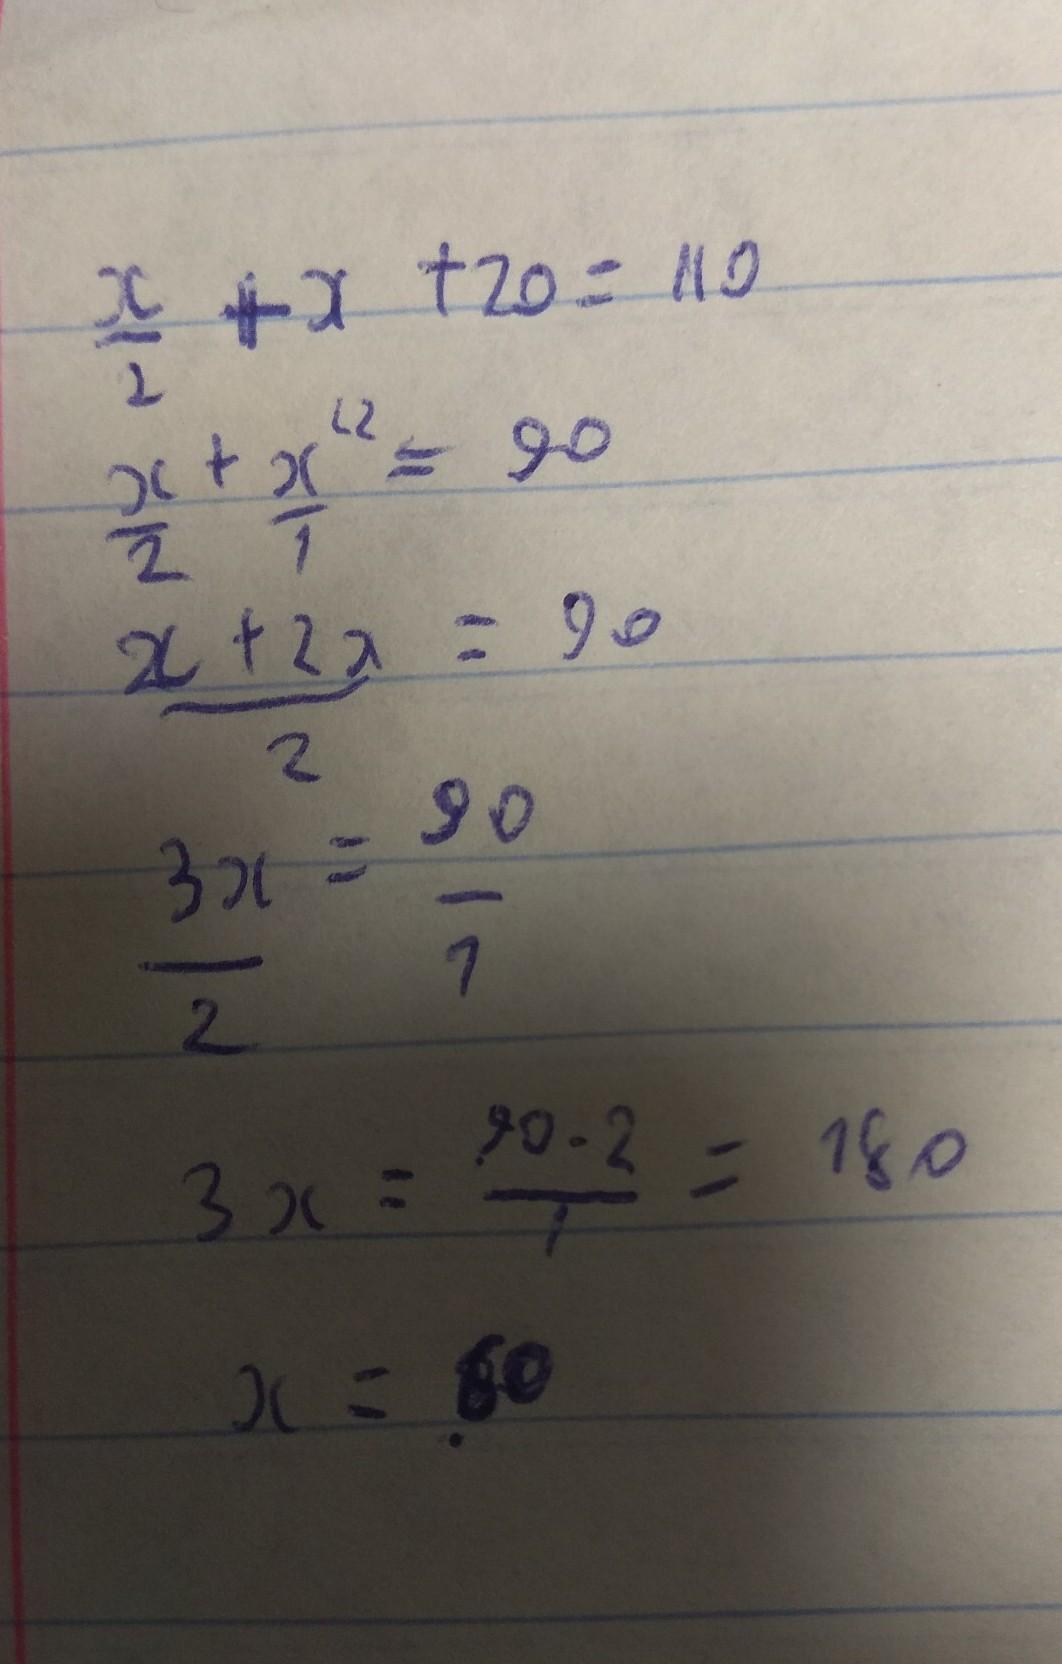 x/2 + x + 20 = 110
x/2 + x/1 ⌊2 = 90
x + 2x / 2 = 90
3x/2 = 90/1
3x = 90·2/1 = 180
x = 60